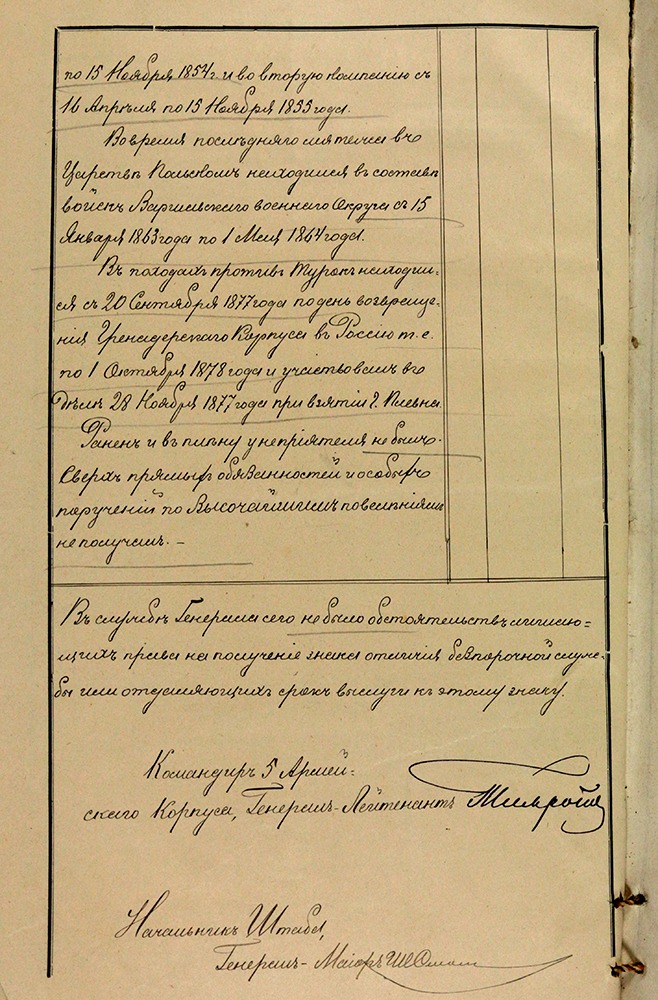 по 15 Ноября 1854 г. и во вторую кампанію съ
16 Апрѣля по 15 Ноября 1855 года.
Во время послѣдняго мятежа въ
Царствѣ Польскомъ находился въ составѣ
войскъ Варшавскаго военнаго Округа съ 15
Января 1863 года по 1 Мая 1864 года.
Въ походахъ противъ Турокъ находил=
ся съ 20 Сентября 1877 года по день возвраще=
нія Гренадерскаго Корпуса въ Россію т. е.
по 1 Октября 1878 года и участвовалъ въ
дѣлѣ 28 Ноября 1877 года при взятіи г. Плевна.
Раненъ и въ плѣну у непріятеля не былъ.
Сверхъ прямыхъ обязанностей и особыхъ
порученій по Высочайшимъ повелѣніямъ
не получалъ. —
Въ службѣ Генерала сего не было обстоятельствъ лишаю=
щихъ права на полученіе знака отличія безпорочной служ=
бы или отдаляющихъ срокъ выслуги къ этому знаку.
Командиръ 5 Армей=
скаго Корпуса, Генералъ-Лейтенантъ
Начальникъ Штаба,
Генералъ-Маіоръ